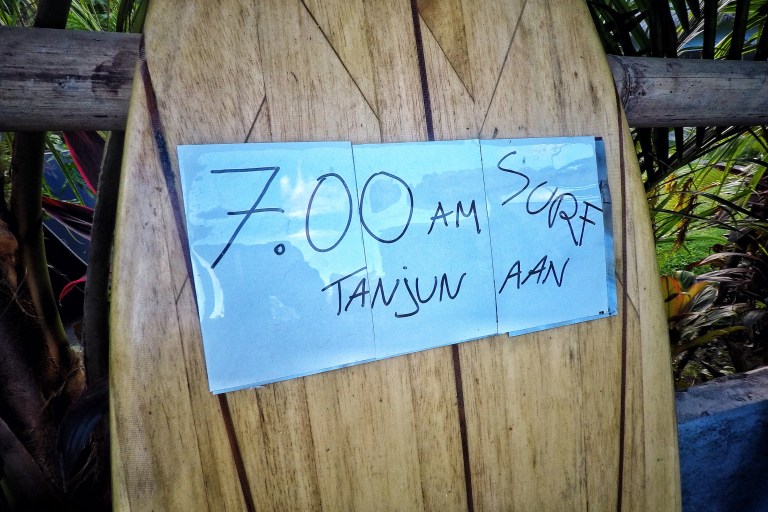 7.00 AM SURF
TANJUN AAN